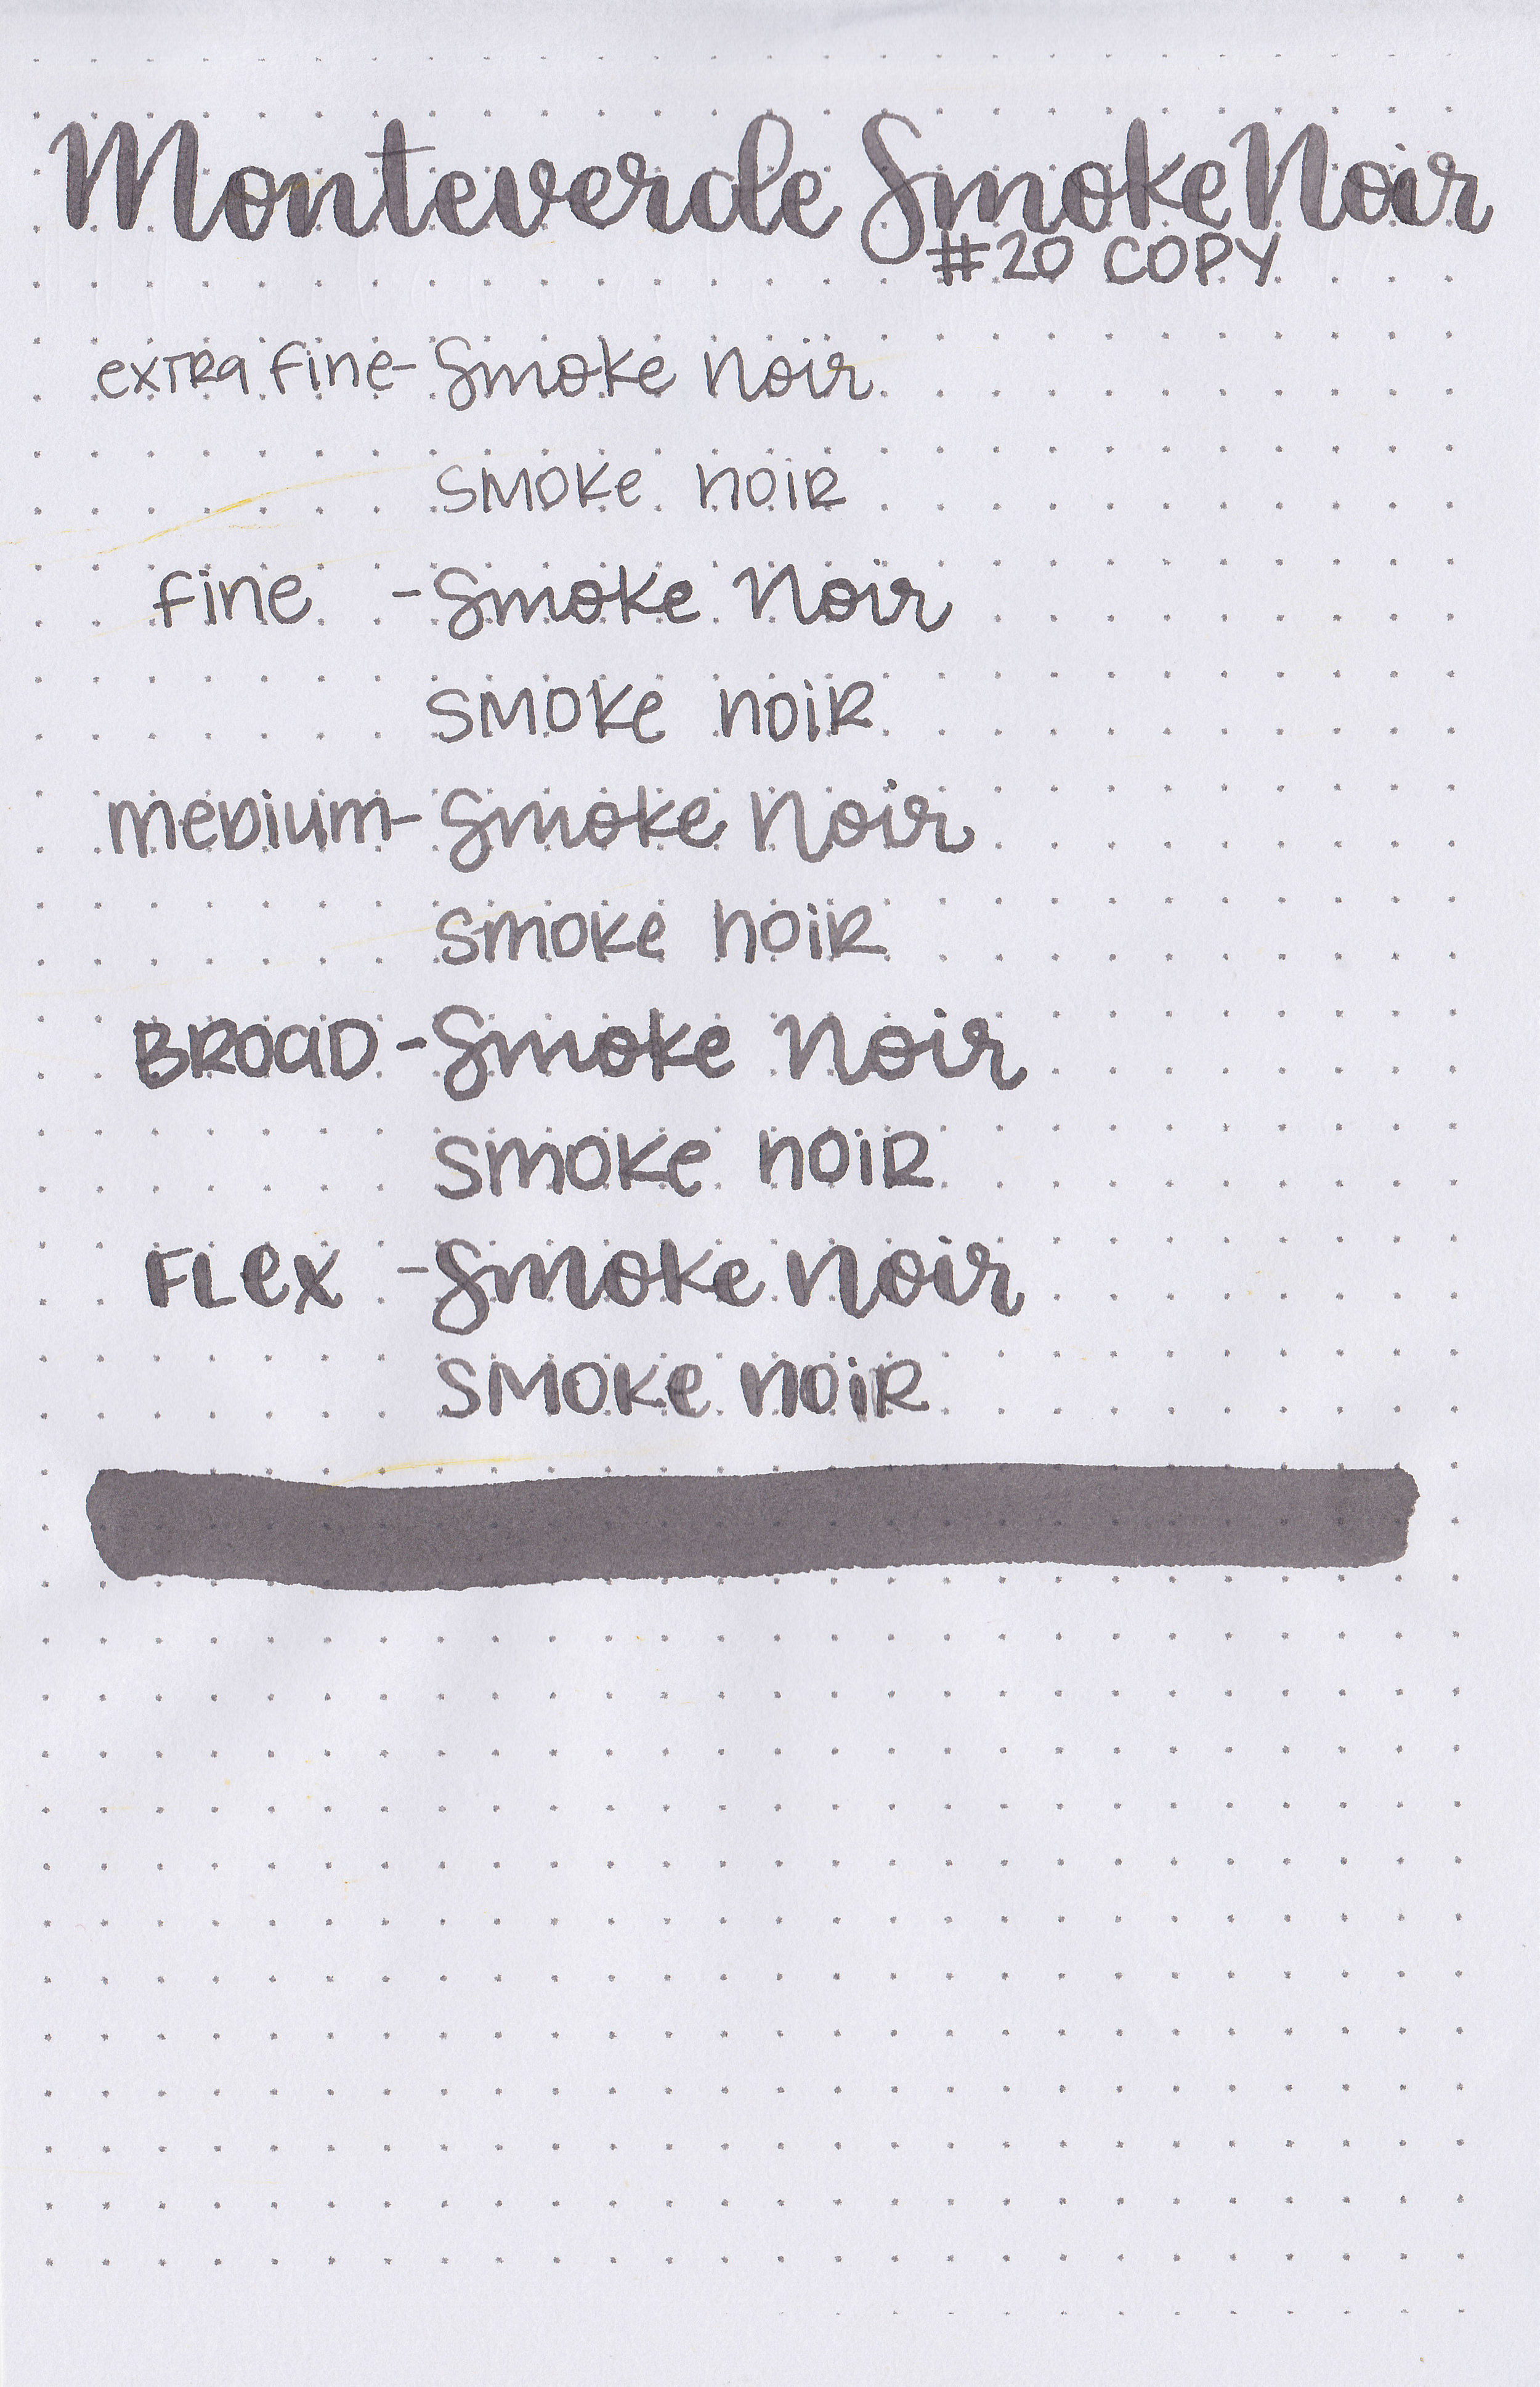 Monteverde Smoke Noir
#20 COPY
extra fine- Smoke Noir
smoke noir
fine - Smoke Noir
smoke noir
medium- Smoke Noir
smoke noir
BROAD - Smoke Noir
smoke noir
FLex - Smoke Noir
smoke noir